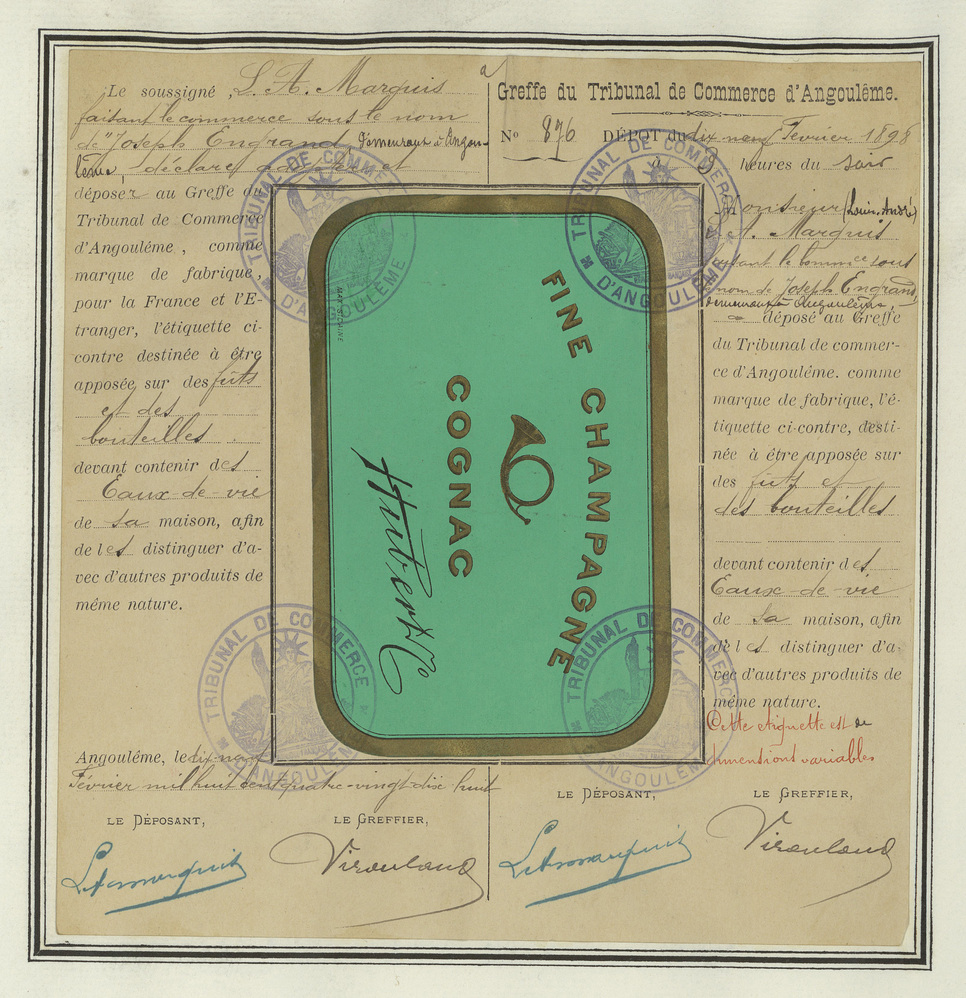 Le soussigné, L. A. Marquis
faisant le commerce sous le nom
de "Joseph Engrand, demeurant à Angou-
lême, déclare avoir et
déposer au Greffe du
Tribunal de Commerce
d'Angoulême, comme
marque de fabrique,
pour la France et l'E-
tranger, l'étiquette ci-
contre destinée à être
apposée sur des fûts
et des
bouteilles
devant contenir des
Eaux-de-vie
de sa maison, afin
de les distinguer d'a-
vec d'autres produits de
même nature.
Angoulême, le dix-neuf
Février mil huit cent quatre-vingt-dix huit
LE DÉPOSANT,
LE GREFFIER,
L A Marquis
Virouland
TRIBUNAL DE COMMERCE
D'ANGOULÊME
FINE CHAMPAGNE
COGNAC
TRIBUNAL DE COMMERCE
D'ANGOULÊME
TRIBUNAL DE COMMERCE
D'ANGOULÊME
TRIBUNAL DE COMMERCE
D'ANGOULÊME
Greffe du Tribunal de Commerce d'Angoulême.
No 876 DÉPOT du dix neuf Février 1898
à 3 heures du soir
Monsieur (Louis, André)
L. A. Marquis
faisant le commce sous
nom de Joseph Engrand,
demeurant à Angoulême,
a déposé au Greffe
du Tribunal de commer-
ce d'Angoulême. comme
marque de fabrique, l'é-
tiquette ci-contre, desti-
née à être apposée sur
des fûts et
des bouteilles
devant contenir des
Eaux-de-vie
de sa maison, afin
de les distinguer d'a-
vec d'autres produits de
même nature.
Cette etiquette est de
dimensions variables
LE DÉPOSANT,
LE GREFFIER,
L A Marquis
Virouland